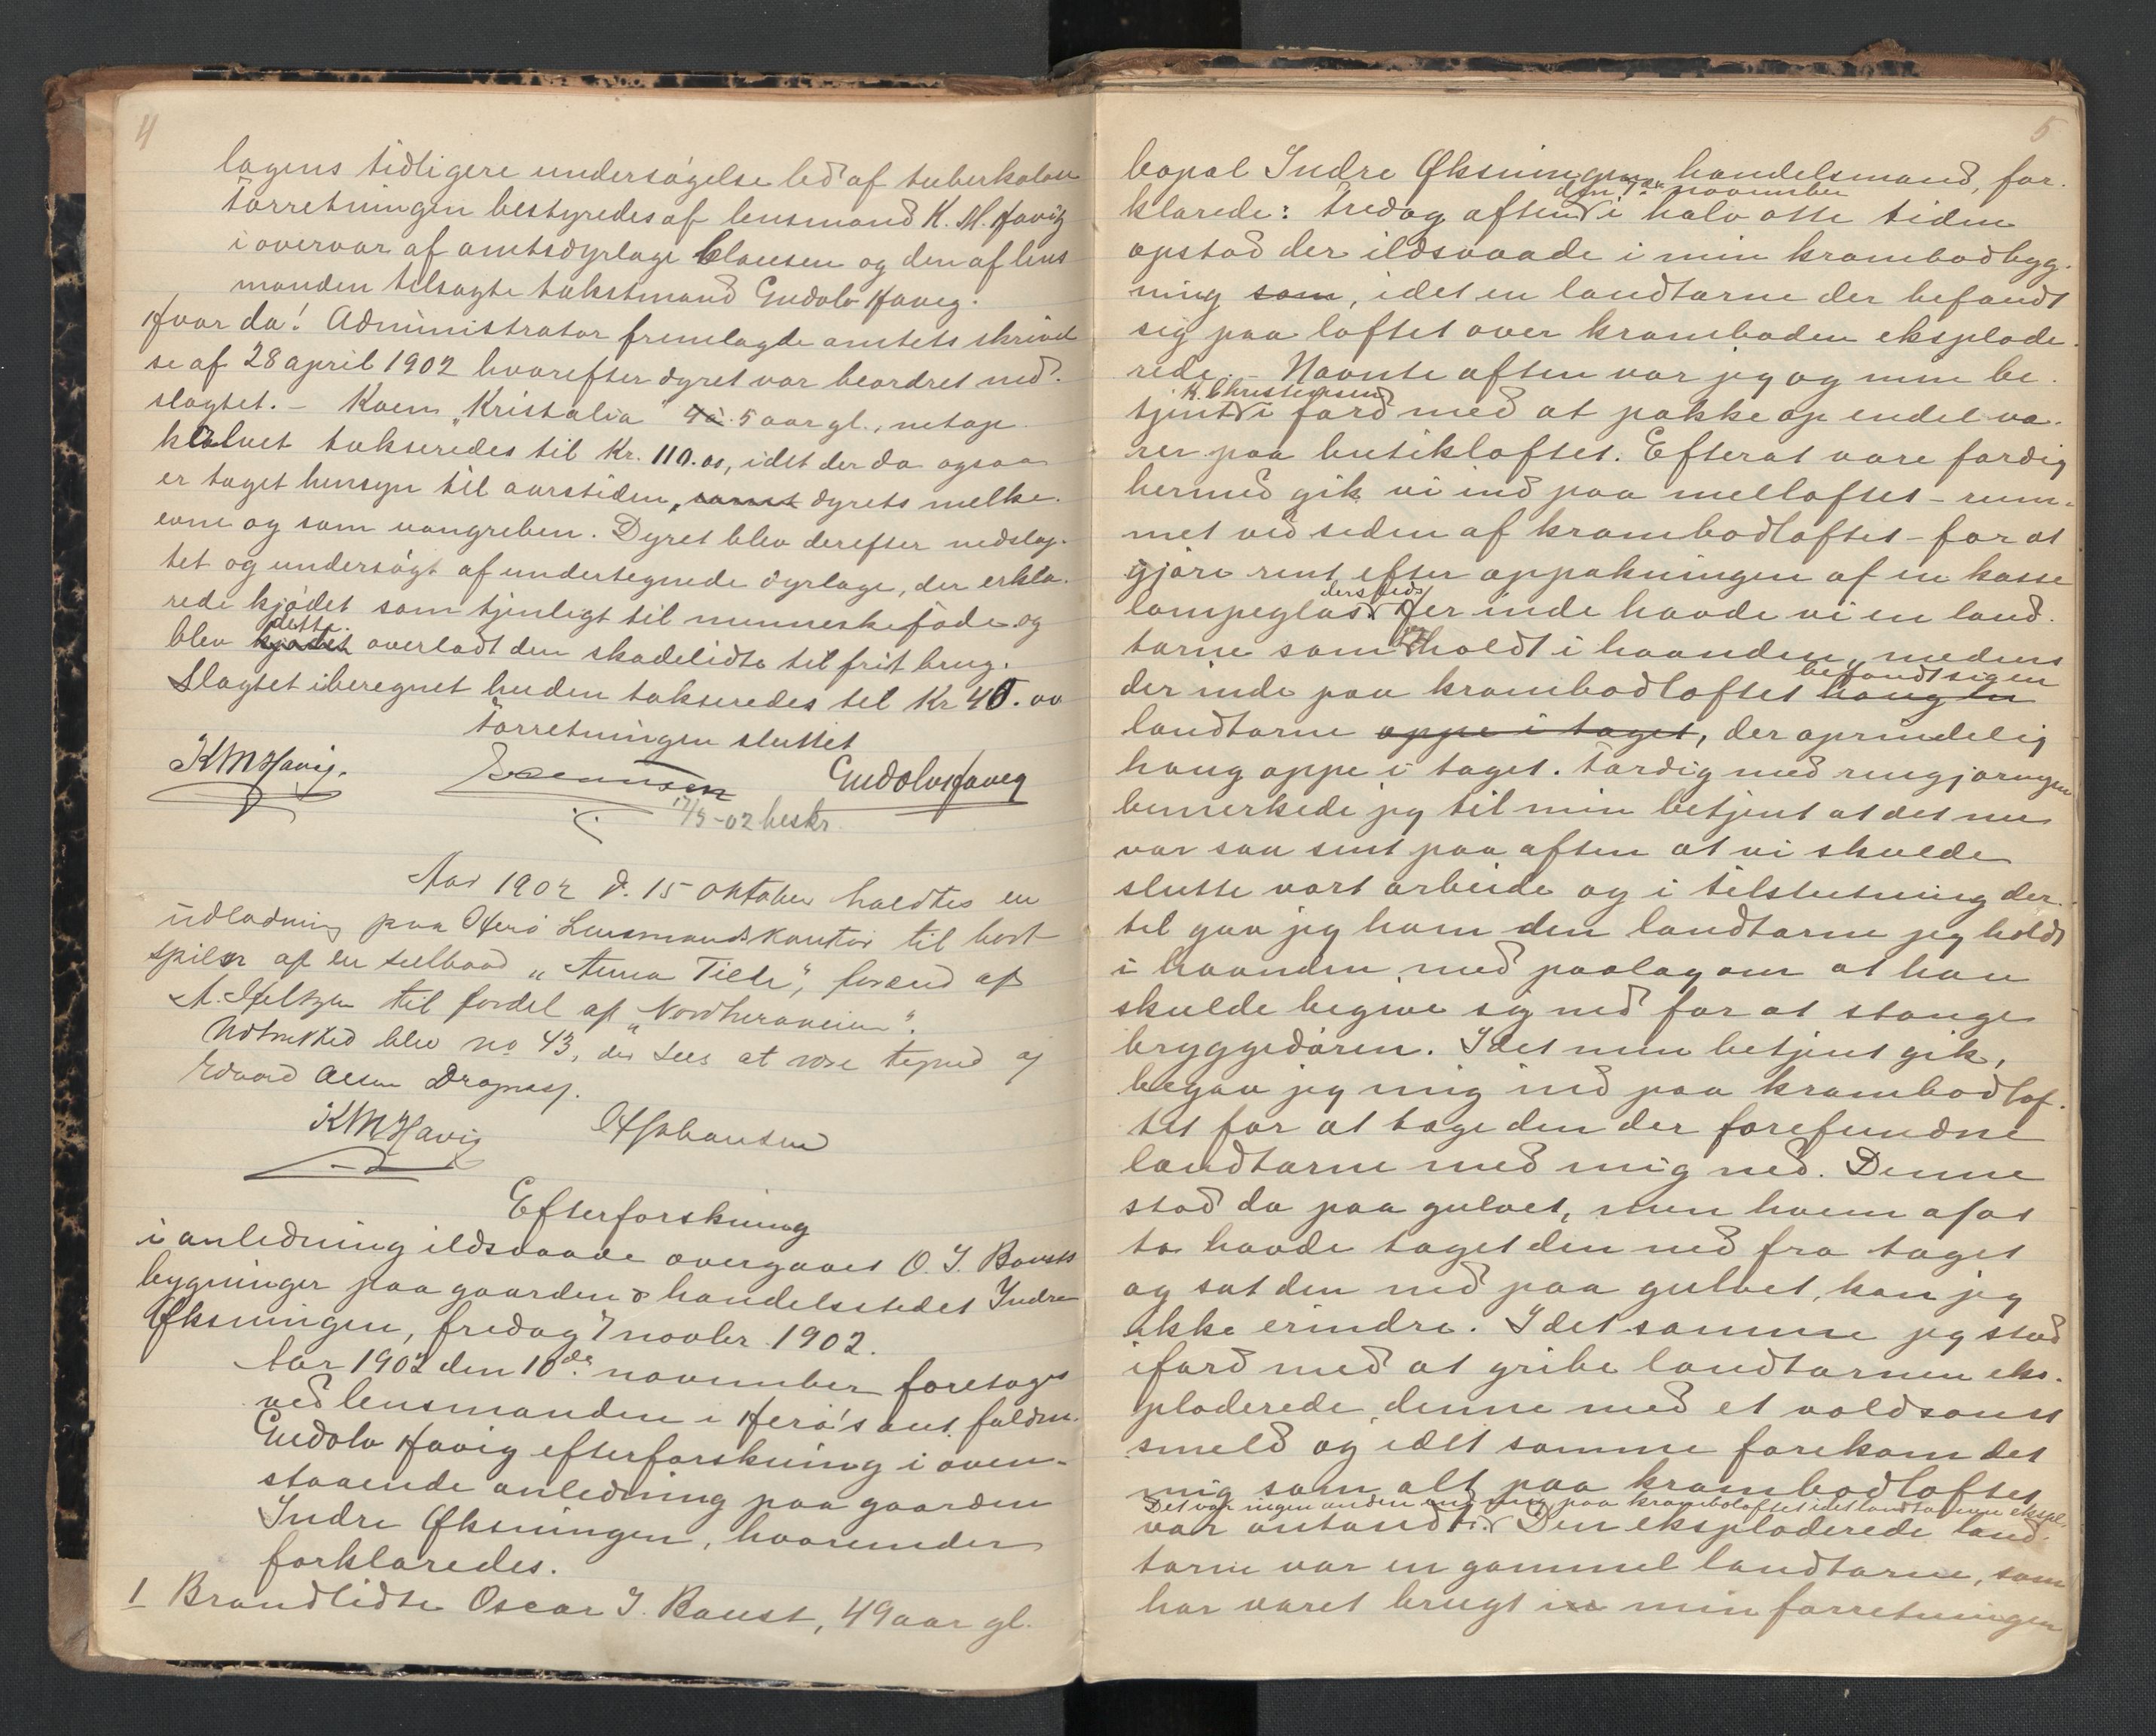 4
lægens tidligere undersøgelse led af tuberkulose
Forretningen bestyredes af lensmand K. M. Havig
i overvær af amtsdyrlæge Clausen og den af lens
manden tilsagte takstmand Gudolv Haveg.
Hvor da! Administrator fremlagde amtets skrivel
se af 28 april 1902 hvorefter dyret var beordret ned-
slagtet. – Koen "Kristalia" 5 aar gl., netop
kalvet takseredes til Kr. 110.00, idet der da ogsaa
er taget hensyn til aarstiden, samt dyrets melke-
evne og som uangreben. Dyret blev derefter nedslag-
tet og undersøgt af undertegnede dyrlæge, der erklæ-
rede kjødet som tjenligt til menneskeføde og
dette
blev kjødet overladt den skadelidte til frit brug.
Slagtet iberegnet huden takseredes til Kr 40.00
Forretningen sluttet
KMHavig. Gudolv Haveg
17/5-02 beskr.
Aar 1902 d. 15 oktober holdtes en
udlodning paa Herø Lensmandskontor til bort-
spilen af en selbaad "Anna Tilde", foræred af
A. Zeltzer til fordel af "Nordheraveien".
Udtrukked blev no 43, der sees at være tegned af
Edvard Olsen Dragnesß.
KMHavig Johansen
Efterforskning
i anledning ildsvaade overgaaet O. J. Bousts
bygninger paa gaarden & handelsstedet Indre
Øksningen, fredag 7 novbr. 1902.
Aar 1902 den 10de november foretoges
ved lensmanden i Herø's aut. fuldm.
Gudolv Havig efterforskning i oven-
staaende anledning paa gaarden
Indre Øksningen, hvorunder
forklaredes.
1 Brandlidte Oscar J. Boust, 49 aar gl.
5
bopæl Indre Øksningen, handelsmand, for-
den 7de november
klarede: Fredag aften i halv otte tiden
opstod der ildsvaade i min krambodbyg-
ning som, idet en landtærne der befandt
sig paa loftet over kramboden eksplode-
rede. – Nævnte aften var jeg og min be-
K. Christensen
tjent i færd med at pakke op endel va-
rer paa butikloftet. Efterat være færdig
hermed gik vi ind paa melloftet – rum-
met ved siden af krambodloftet – for at
gjøre rent efter oppakningen af en kasse
dersteds
lampeglas. Her inde havde vi en land-
jeg
tærne som holdt i haanden, medens
befandt sig en
der inde paa krambodloftet hang en
landtærne oppe i taget, der oprindelig
hang oppe i taget. Færdig med rengjøringen
bemerkede jeg til min betjent at det nu
var saa sent paa aften at vi skulde
slutte vort arbeide og i tilslutning der-
til gav jeg ham den landtærne jeg holdt
i haanden med paalæg om at han
skulde begive sig ned for at stænge
bryggedøren. Idet min betjent gik,
begav jeg mig ind paa krambodlof-
tet for at tage den der forefundne
landtærne med mig ned. Denne
stod da paa gulvet, men hvem af os
to havde taget den ned fra taget
og sat den ned paa gulvet, kan jeg
ikke erindre. I det samme jeg stod
ifærd med at gribe landtærnen eks-
ploderede denne med et voldsomt
smeld og idet samme forekom det
mig som alt paa krambodloftet
Det var ingen anden end mig paa kramboloftet idet landtærnen ekspl.
var antændt. Den eksploderede land-
tærne var en gammel landtærne, som
har været brugt i min forretningen